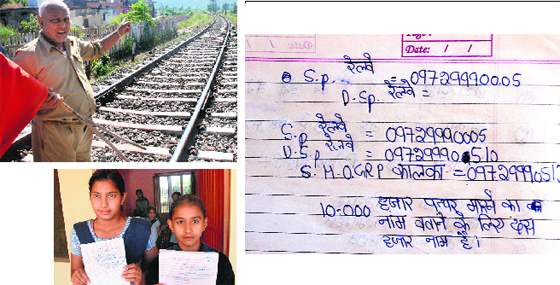 Date: / /
रेल्वे
S.p = 09729990005
रेल्वे
D.Sp. =
रेल्वे
S.p = 09729990005
रेल्वे
D.S.p = 09729990510
S.H.O.G.R.P कालका = 0972999051
10.000 हजार पत्थर मारने का
नाम बताने के लिए दस
हजार नाम है।